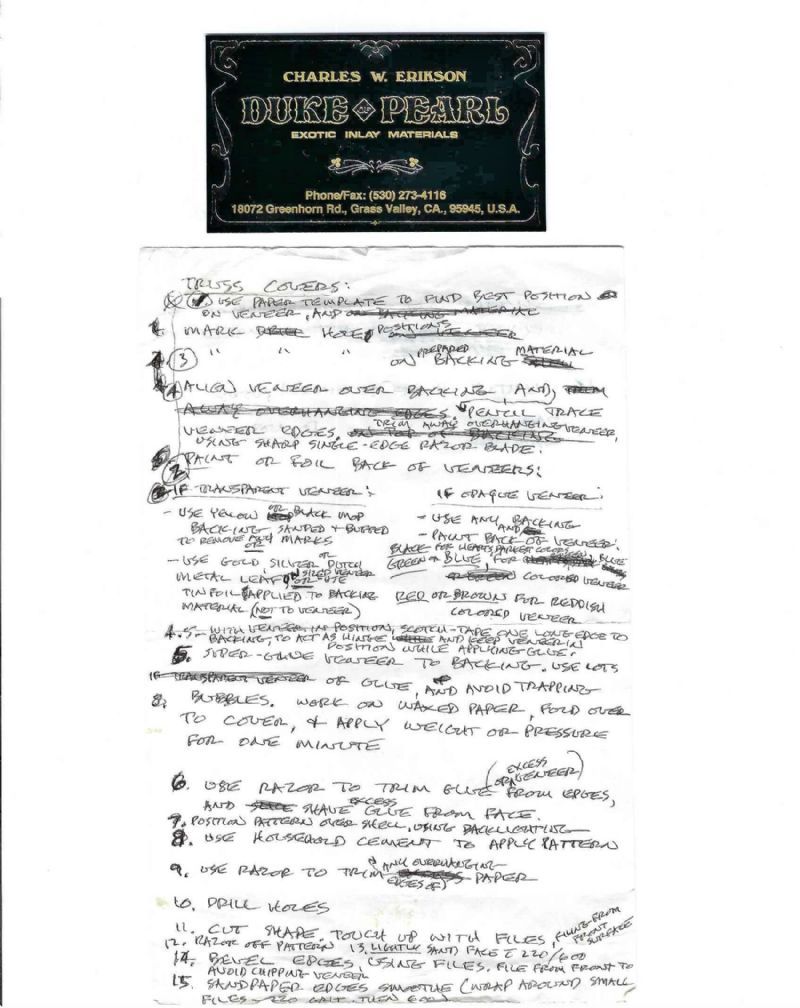 CHARLES W. ERIKSON
DUKE OF PEARL
EXOTIC INLAY MATERIALS
Phone/Fax: (530) 273-4116
18072 Greenhorn Rd., Grass Valley, CA., 95945, U.S.A.
TRUSS COVERS:
USE PAPER TEMPLATE TO FIND BEST POSITION
ON VENEER, AND
MARK HOLE POSITIONS
3 " " " ON PREPARED BACKING MATERIAL
4 ALIGN VENEER OVER BACKING AND,
PENCIL TRACE
VENEER EDGES. TRIM AWAY OVERHANGING VENEER,
USING SHARP SINGLE-EDGE RAZOR BLADE.
2 PAINT OR FOIL BACK OF VENEERS:
IF TRANSPARENT VENEER: IF OPAQUE VENEER:
- USE YELOW OR BLACK MOP
BACKING, SANDED + BUFFED
TO REMOVE ANY MARKS
OR
- USE GOLD, SILVER OR DUTCH
METAL LEAF ON SIZED VENEER
OR USE
TINFOIL APPLIED TO BACKING
MATERIAL (NOT TO VENEER)
- USE ANY BACKING
AND
- PAINT BACK OF VENEER:
BLACK FOR HEARTS, DARKEST COLORS
GREEN OR BLUE, FOR BLUE
COLORED VENEER
RED OR BROWN FOR REDDISH
COLORED VENEER
4.5- WITH VENEER IN POSITION, SCOTCH-TAPE ONE LONG EDGE TO
BACKING, TO ACT AS HINGE AND KEEP VENEER IN
POSITION WHILE APPLYING GLUE.
5. SUPER-GLUE VENEER TO BACKING. USE LOTS
OF GLUE, AND AVOID TRAPPING
BUBBLES. WORK ON WAXED PAPER, FOLD OVER
TO COVER, & APPLY WEIGHT OR PRESSURE
FOR ONE MINUTE
6. USE RAZOR TO TRIM GLUE (OR EXCESS VENEER) FROM EDGES,
AND SHAVE EXCESS GLUE FROM FACE.
7. POSITION PATTERN OVER SHELL, USING BACKLIGHTING
8. USE HOUSEHOLD CEMENT TO APPLY PATTERN
9. USE RAZOR TO TRIM ANY OVERHANGING
EDGES OF PAPER
10. DRILL HOLES
11. CUT SHAPE. TOUCH UP WITH FILES, FILING FROM
FRONT SURFACE
12. RAZOR OFF PATTERN 13. LIGHTLY SAND FACE 220/600
14. BEVEL EDGES, USING FILES. FILE FROM FRONT TO
AVOID CHIPPING VENEER
15. SANDPAPER EDGES SMOOTHE (WRAP AROUND SMALL
FILES - 220 GRIT, THEN 600)